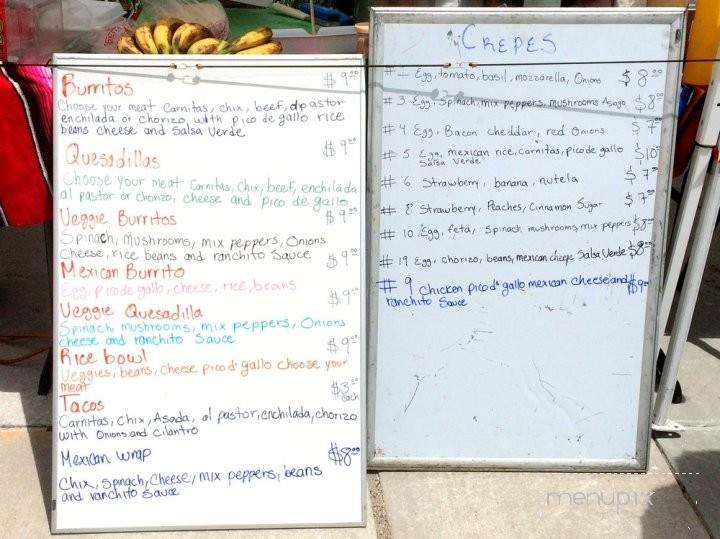 Burritos $9.00
Choose your meat Carnitas, chix, beef, al pastor
enchilada or chorizo, with pico de gallo rice
beans cheese and Salsa Verde
Quesadillas $9.00
Choose your meat Carnitas, Chix, beef, enchilada
al pastor or chorizo, cheese and pico de gallo
Veggie Burritos $9.00
Spinach, Mushrooms, mix peppers, Onions
Cheese, rice beans and ranchito Sauce
Mexican Burrito $9.00
Egg, pico de gallo, cheese, rice, beans
Veggie Quesadilla $9.00
Spinach, mushrooms, mix peppers, Onions
cheese and ranchito Sauce
Rice bowl $9.00
Veggies, beans, cheese pico d' gallo choose your
meat
Tacos $3.00 each
Carnitas, Chix, Asada, al pastor, enchilada, chorizo
with Onions and Cilantro
Mexican wrap $8.00
Chix, Spinach, Cheese, mix peppers, beans
and ranchito Sauce
CREPES
# 1 Egg, tomato, basil, mozzarella, Onions $8.00
# 3 Egg, Spinach, mix peppers, mushrooms Asiago $8.00
# 4 Egg, Bacon cheddar, red Onions $7.00
# 5 Egg, mexican rice, carnitas, pico de gallo $10.00
Salsa Verde
# 6 Strawberry, banana, nutela $7.00
# 8 Strawberry, Peaches, Cinnamon Sugar $7.00
# 10 Egg, feta, Spinach mushrooms, mix peppers $8.00
# 19 Egg, chorizo, beans, mexican cheese Salsa Verde $8.00
# 9 Chicken pico d' gallo mexican cheese and $9.00
ranchito Sauce
menupix